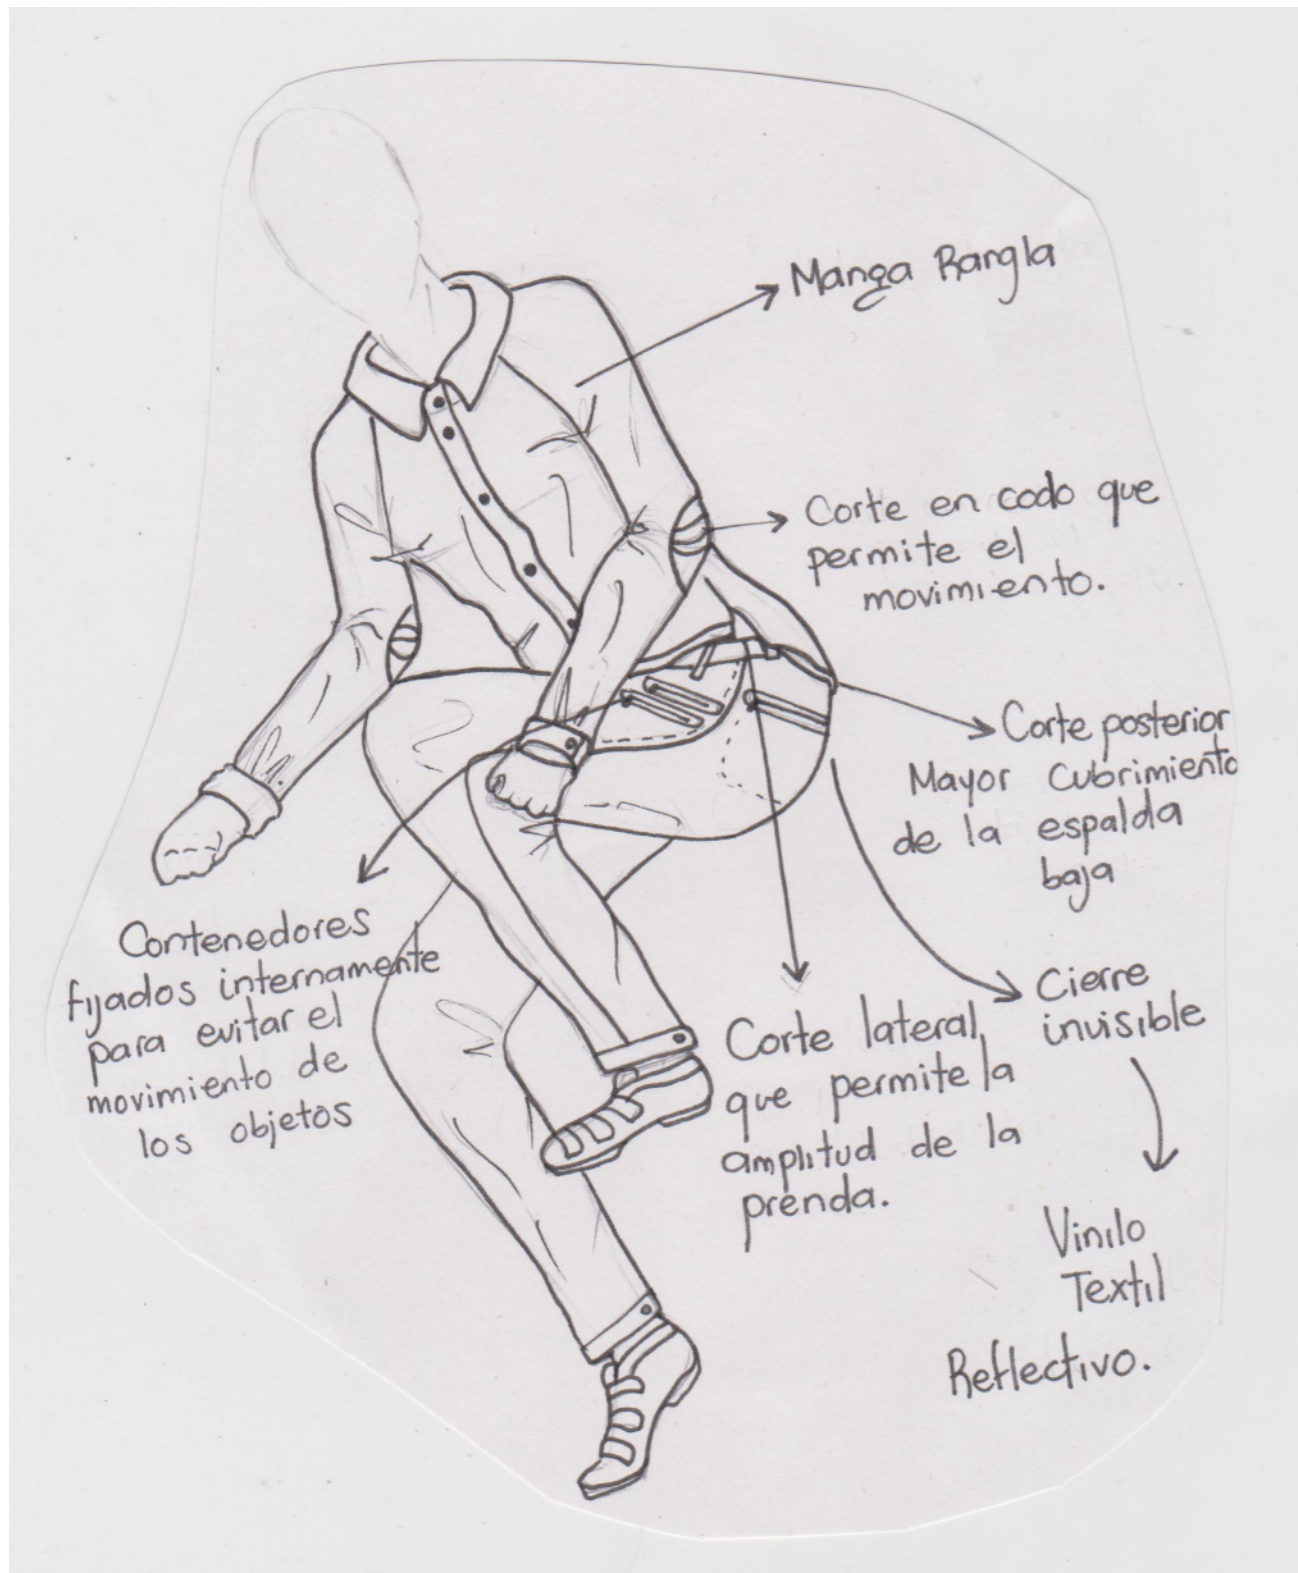 Manga Rangla
Corte en codo que
permite el
movimiento.
Corte posterior
Mayor cubrimiento
de la espalda
baja
Contenedores
fijados internamente
para evitar el
movimiento de
los objetos
Corte lateral,
que permite la
amplitud de la
prenda.
Cierre
invisible
Vinilo
Textil
Reflectivo.